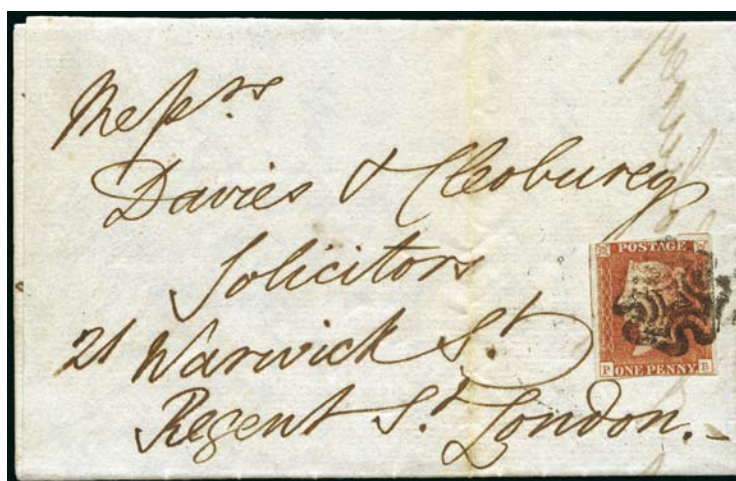 Messrs
Davies & Cleobury
Solicitors
21 Warwick St
Regent St London.
POSTAGE
P ONE PENNY B